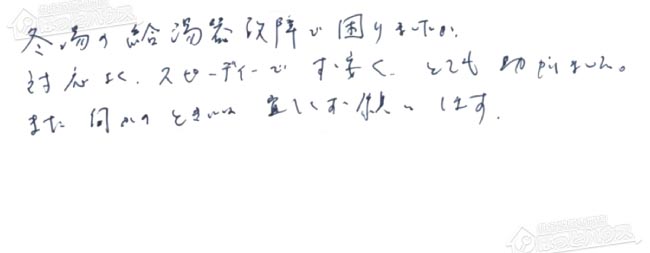 冬場の給湯器故障で困りましたが、
対応よく、スピーディーでお安く、とても助かりました。
また何かのときには宜しくお願いします。